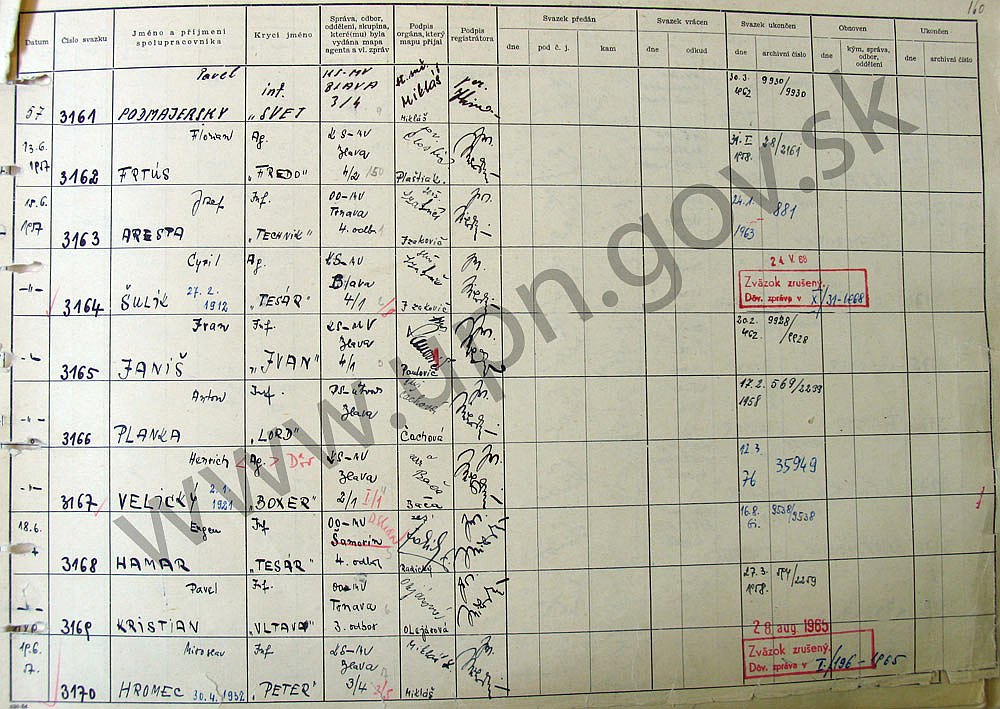 160
Datum
Číslo svazku
Jméno a příjmení
spolupracovníka
Krycí jméno
Správa, odbor,
oddělení, skupina,
které(mu) byla
vydána mapa
agenta a vl. zpráv
Podpis
orgána, který
mapu přijal
Podpis
registrátora
Svazek předán
dne
pod č. j.
kam
Svazek vrácen
dne
odkud
Svazek ukončen
dne
archivní číslo
Obnoven
dne
kým, správa,
odbor,
oddělení
Ukončen
dne
archivní číslo
57
3161
Pavel
PODMAJERSKY
inf.
"SVET"
KS-MV
BLAVA
3/4
Mikláš
Mikláš
30.3.
1962
9930/9930
13.6.
1957
3162
Florian
FRTÚS
Ag.
"FREDO"
KS-MV
Blava
4/2
Plaštiak
31. I.
1958.
28/2161
15.6.
1957
3163
Jozef
ARESTA
Inf.
"TECHNIK"
OO-MV
Trnava
4. odbor
Izakovič
24.1.
1963
881
-"-
3164
Cyril
ŠULÍK
27.2.
1912
Ag.
"TESÁR"
KS-MV
Blava
4/1
Izakovič
24 V. 68
Zväzok zrušený.
Dôv. zpráva v X/31-1968
-"-
3165
Ivan
JANIŠ
Inf.
"IVAN"
KS-MV
Blava
4/1
Pavlovič
20.2.
962.
9928/9928
-"-
3166
Anton
PLANKA
Inf.
"LORD"
Blava
Čachová
17.2.
1958
569/2239
-"-
3167
Henrich
VELICKY
2.1.
1921
<Ag.> Dôv
"BOXER"
KS-MV
Blava
2/1 I/1
Bača
12.3.
76
35949
18.6.
3168
Eugen
HAMAR
Inf
"TESÁR"
OO-MV
Šamorín
4. odbor
Radický
16.8.
61.
9538/9538
-"-
3169
Pavel
KRISTIAN
Inf.
"VLTAVA"
OO-MV
Trnava
3. odbor
Olejárová
27.3.
1958.
574/2259
19.6.
57.
3170
Miroslav
HROMEC
30.4.1932
Inf
"PETER"
KS-MV
Blava
3/4 3/5
Mikláš
Mikláš
28. aug. 1965
Zväzok zrušený.
Dôv. zpráva v I./196-1965
www.upn.gov.sk